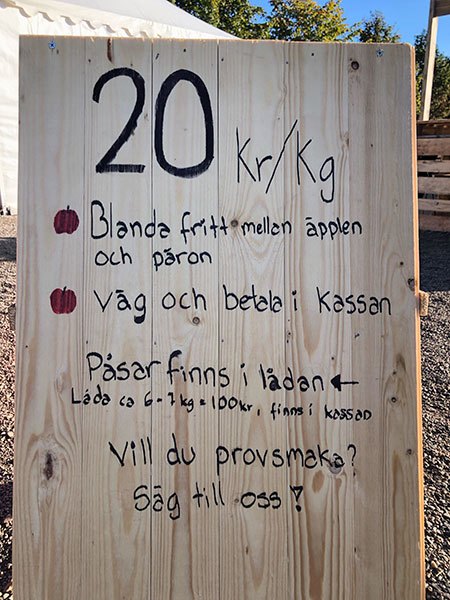 20 Kr/Kg
Blanda fritt mellan äpplen
och päron
Väg och betala i Kassan
Påsar finns i lådan ←
Låda ca 6-7kg = 100kr, finns i kassan
Vill du provsmaka?
Säg till oss!